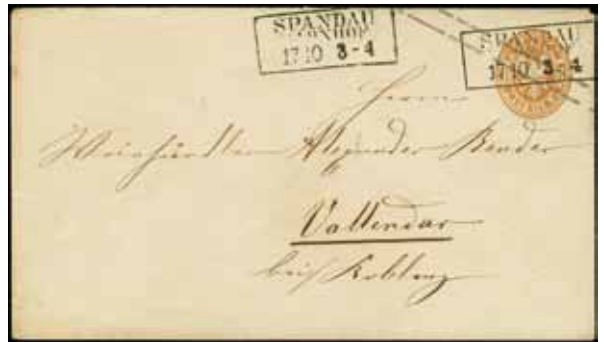 SPANDAU
BAHNHOF
17 10 3-4
SPANDAU
17 10 3-4
Herrn
Weinhändler Alexander Bender
Vallendar
bei Koblenz